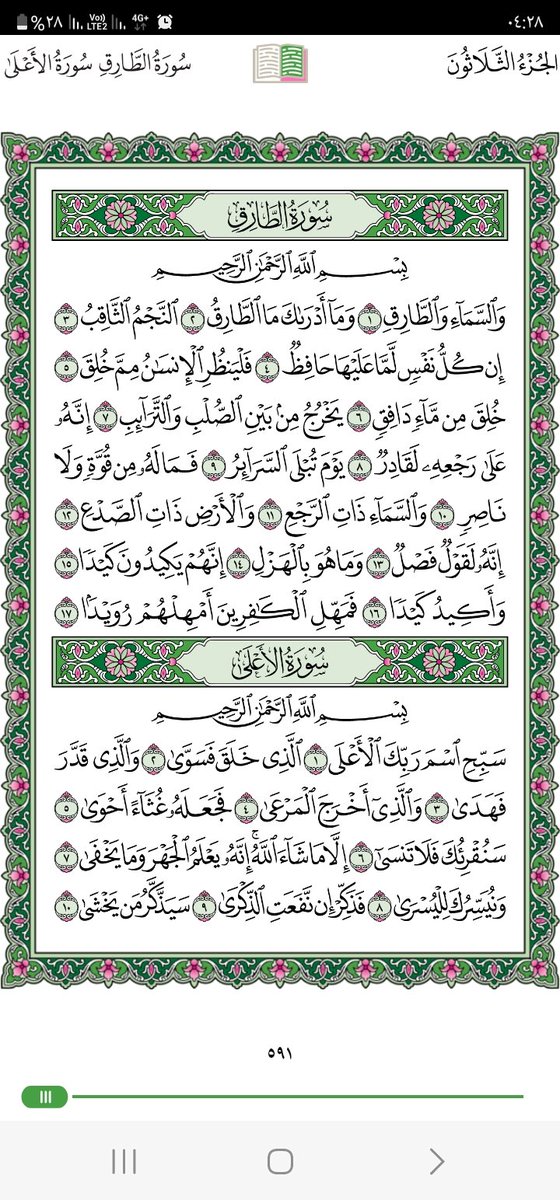 %٢٨ Vo) LTE2 4G+ ٠٤:٢٨
الجُزْءُ الثَّلَاثُونَ سُورَةُ الطَّارِقِ سُورَةُ الأَعْلَىٰ
سُورَةُ الطَّارِقِ
بِسْمِ ٱللَّهِ ٱلرَّحْمَٰنِ ٱلرَّحِيمِ
وَٱلسَّمَآءِ وَٱلطَّارِقِ ١ وَمَآ أَدْرَىٰكَ مَا ٱلطَّارِقُ ٢ ٱلنَّجْمُ ٱلثَّاقِبُ ٣
إِن كُلُّ نَفْسٍ لَّمَّا عَلَيْهَا حَافِظٌ ٤ فَلْيَنظُرِ ٱلْإِنسَٰنُ مِمَّ خُلِقَ ٥
خُلِقَ مِن مَّآءٍ دَافِقٍ ٦ يَخْرُجُ مِنۢ بَيْنِ ٱلصُّلْبِ وَٱلتَّرَآئِبِ ٧ إِنَّهُۥ
عَلَىٰ رَجْعِهِۦ لَقَادِرٌ ٨ يَوْمَ تُبْلَى ٱلسَّرَآئِرُ ٩ فَمَا لَهُۥ مِن قُوَّةٍ وَلَا
نَاصِرٍ ١٠ وَٱلسَّمَآءِ ذَاتِ ٱلرَّجْعِ ١١ وَٱلْأَرْضِ ذَاتِ ٱلصَّدْعِ ١٢
إِنَّهُۥ لَقَوْلٌ فَصْلٌ ١٣ وَمَا هُوَ بِٱلْهَزْلِ ١٤ إِنَّهُمْ يَكِيدُونَ كَيْدًا ١٥
وَأَكِيدُ كَيْدًا ١٦ فَمَهِّلِ ٱلْكَٰفِرِينَ أَمْهِلْهُمْ رُوَيْدًۢا ١٧
سُورَةُ الأَعْلَىٰ
بِسْمِ ٱللَّهِ ٱلرَّحْمَٰنِ ٱلرَّحِيمِ
سَبِّحِ ٱسْمَ رَبِّكَ ٱلْأَعْلَى ١ ٱلَّذِى خَلَقَ فَسَوَّىٰ ٢ وَٱلَّذِى قَدَّرَ
فَهَدَىٰ ٣ وَٱلَّذِىٓ أَخْرَجَ ٱلْمَرْعَىٰ ٤ فَجَعَلَهُۥ غُثَآءً أَحْوَىٰ ٥
سَنُقْرِئُكَ فَلَا تَنسَىٰٓ ٦ إِلَّا مَا شَآءَ ٱللَّهُ ۚ إِنَّهُۥ يَعْلَمُ ٱلْجَهْرَ وَمَا يَخْفَىٰ ٧
وَنُيَسِّرُكَ لِلْيُسْرَىٰ ٨ فَذَكِّرْ إِن نَّفَعَتِ ٱلذِّكْرَىٰ ٩ سَيَذَّكَّرُ مَن يَخْشَىٰ ١٠
٥٩١